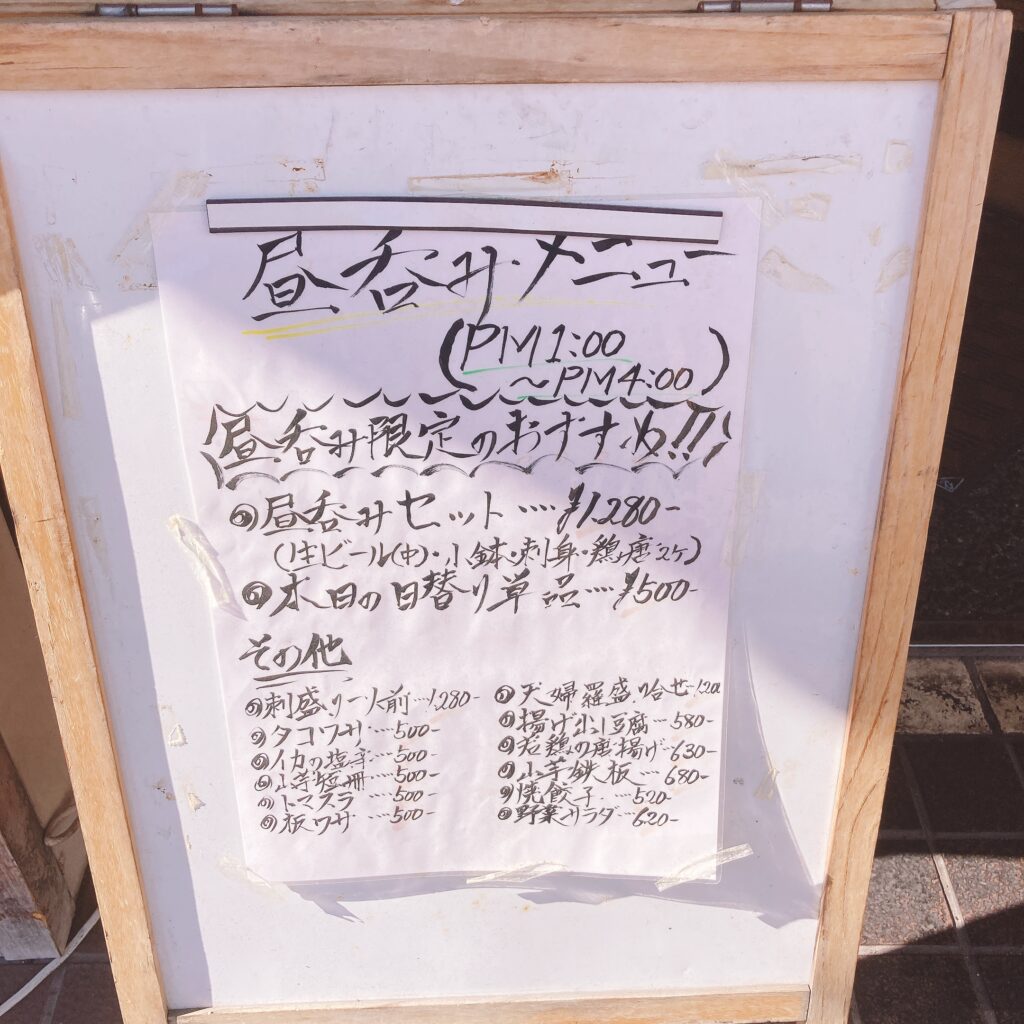 昼呑みメニュー
(PM1:00
～PM4:00)
昼呑み限定のおすすめ!!
昼呑みセット‥‥¥1,280-
(生ビール(中)・小鉢・刺身・鶏唐2ケ)
本日の日替り単品‥‥¥500-
その他
刺盛り一人前‥1,280-
タコワサ‥‥500-
イカの塩辛‥‥500-
山芋短冊‥‥500-
トマスラ‥‥500-
板ワサ‥‥500-
天婦羅盛り合せ‥
揚げ出し豆腐‥580-
若鶏の唐揚げ‥630-
山芋鉄板‥‥680-
焼餃子‥‥520-
野菜サラダ‥620-